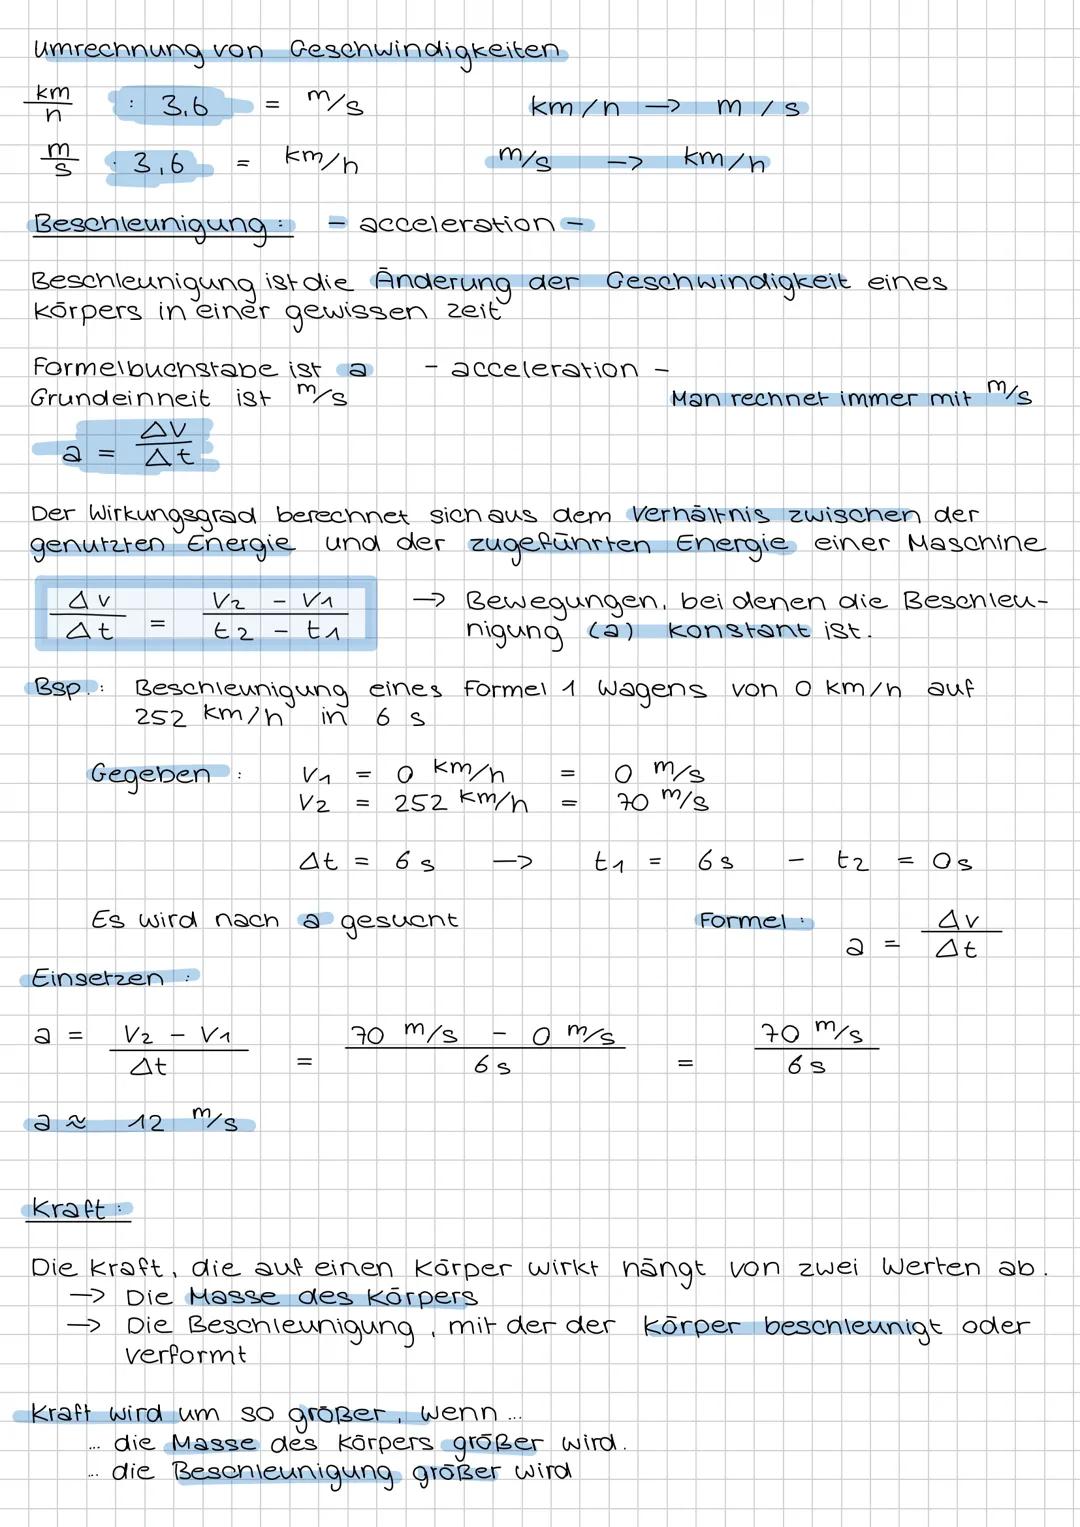 Umrechnung von Geschwindigkeiten
km/h : 3,6 = m/s km/h → m/s
m/s · 3,6 = km/h m/s → km/h
Beschleunigung: - acceleration -
Beschleunigung ist die Änderung der Geschwindigkeit eines
Körpers in einer gewissen Zeit
Formelbuchstabe ist a - acceleration -
Grundeinheit ist m/s Man rechnet immer mit m/s
a = Δv/Δt
Der Wirkungsgrad berechnet sich aus dem Verhältnis zwischen der
genutzten Energie und der zugeführten Energie einer Maschine
Δv/Δt = v2 - v1 / t2 - t1 → Bewegungen, bei denen die Beschleu-
nigung (a) konstant ist.
Bsp.: Beschleunigung eines Formel 1 Wagens von 0 km/h auf
252 km/h in 6 s
Gegeben: V1 = 0 km/h = 0 m/s
V2 = 252 km/h = 70 m/s
Δt = 6s → t1 = 6s - t2 = 0s
Es wird nach a gesucht Formel: a = Δv/Δt
Einsetzen:
a = V2 - V1 / Δt = 70 m/s - 0 m/s / 6s = 70 m/s / 6s
a ≈ 12 m/s
Kraft:
Die Kraft, die auf einen Körper wirkt hängt von zwei Werten ab.
→ Die Masse des Körpers
→ Die Beschleunigung, mit der der Körper beschleunigt oder
verformt
Kraft wird um so größer, wenn ...
... die Masse des Körpers größer wird.
... die Beschleunigung größer wird